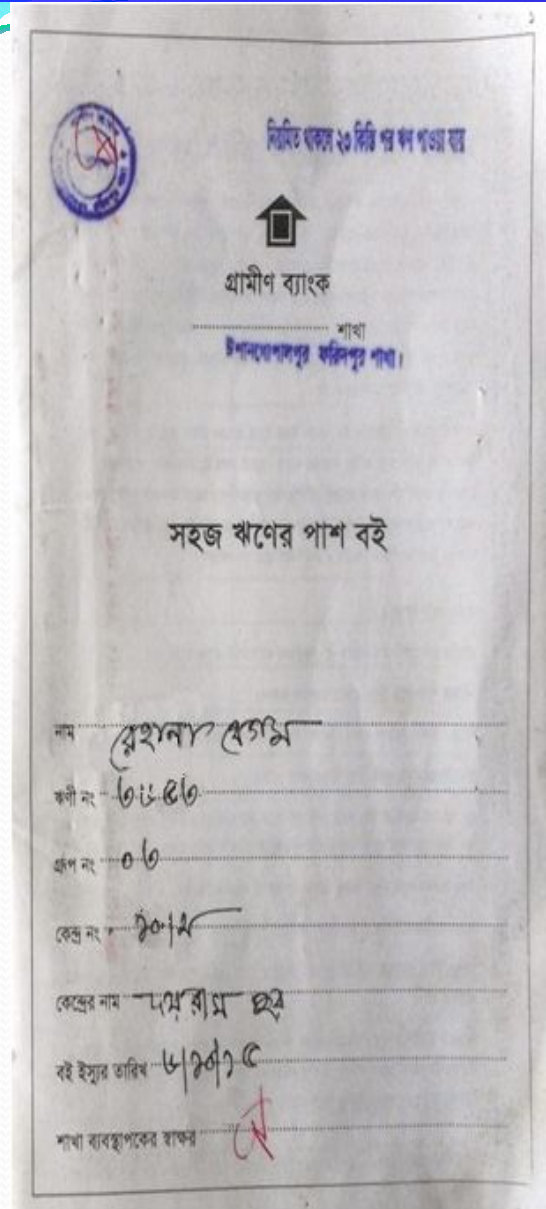 ১
নিয়মিত থাকলে ২৩ কিস্তি পর ঋণ পাওয়া যায়
গ্রামীণ ব্যাংক
শাখা
ফরিদপুর শাখা।
সহজ ঋণের পাশ বই
নাম রেহানা বেগম
ঋণী নং
গ্রুপ নং ০৩
কেন্দ্র নং ১০/ম
কেন্দ্রের নাম
বই ইস্যুর তারিখ ৬/১০/১৫
শাখা ব্যবস্থাপকের স্বাক্ষর